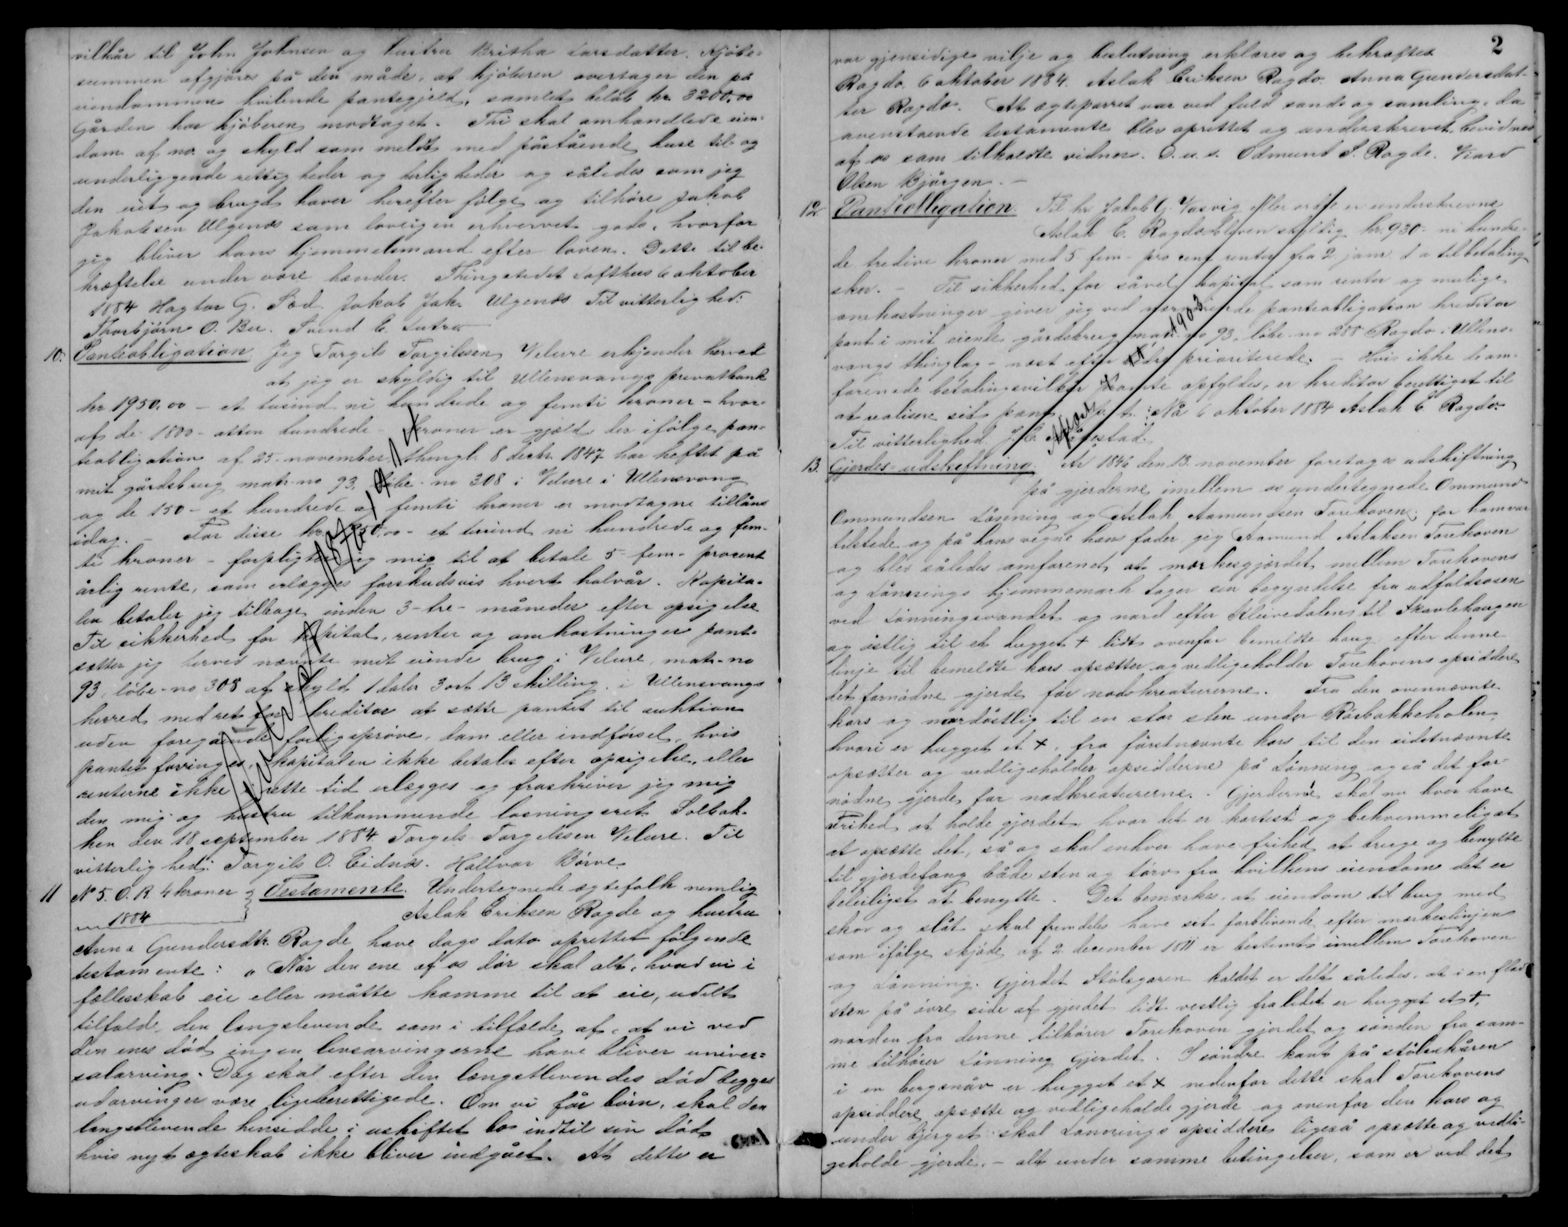 vilkår til John Johnsen og hustru Britha Larsdatter. Kjøbe-
summen afgjøres på den måde, at kjøberen overtager den på
eiendommen hvilende pantegjeld, samlet beløb kr. 3200,00
Gården har kjøberen modtaget. Thi skal omhandlede eien-
dom af no. og skyld som meldt med påstående huse til og
underliggende rettigheder og herligheder og således som jeg
den eiet og brugt haver herefter følge og tilhøre Jakob
Jakobsen Ulgenæs som lovligen erhvervet gods, hvorfor
jeg bliver hans hjemmelsmand efter loven. Dette til be-
kræftelse under vore hænder. Thingstedet Lofthus 6 oktober
1884 Hagtor G. Sæd Jakob Jak. Ulgenæs Til vitterlighed:
Thorbjørn O. Svend E.
10. Panteobligation Jeg Torgils Torgilssen Velure erkjender herved
at jeg er skyldig til Ullensvangs privatbank
kr 1950.00 - et tusind ni hundrede og femti kroner - hvor-
af de 1800 - atten hundrede - kroner er gjæld der ifølge pan-
teobligation af 25 november, thingl. 8 decbr. 1847 har heftet på
mit gårdsbrug matr. no 93, løbe-no 308 i Velure i Ullensvang
og de 150 - et hundrede og femti kroner er modtagne tillåns
idag. - For disse kr. 1950,00 - et tusind ni hundrede og fem-
ti kroner - forpligter jeg mig til at betale 5 - fem - procent
årlig rente, som erlægges forskudsvis hvert halvår. Kapita-
len betaler jeg tilbage inden 3 - tre - måneder efter opsigelse
Til sikkerhed for kapital, renter og omkostninger pant-
sætter jeg herved nævnte mit eiende brug i Velure, matr-no
93, løbe-no 308 af skyld 1 daler 3 ort 13 skilling i Ullensvangs
herred med ret for kreditor at sætte pantet til auktion
uden foregående forligsprøve, dom eller indførsel, hvis
pantet forringes, kapitalen ikke betales efter opsigelse, eller
renterne ikke i rette tid erlægges og fraskriver jeg mig
den mig og hustru tilkommende løsningsret Solbak-
ken den 18 september 1884 Torgils Torgilssen Velure. Til
vitterlighed: Torgils O. Eidnæs. Hallvar Børve
11 No 5. O. R. 4 kroner Testamente. Undertegnede ægtefolk nemlig
1884 Aslak Eriksen Ragde og hustru
Anna Gundersdtr. Ragde have dags dato oprettet følgende
testamente: "Når den ene af os dør skal alt, hvad vi i
fællesskab eie eller måtte komme til at eie, udelt
tilfalde den længstlevende som i tilfælde af, at vi ved
den enes død ingen livsarvingerne have bliver univer-
salarving. Dog skal efter den længstlevendes død begges
udarvinger være ligeberettigede. Om vi får børn, skal den
længstlevende hensidde i uskiftet bo indtil sin død
hvis nyt ægteskab ikke bliver indgået. At dette er
2
vor gjensidige vilje og beslutning erklæres og bekræftes
Ragde 6 oktober 1884. Aslak Eriksen Ragde. Anna Gundersdat-
ter Ragde. At ægteparret var ved fuld sands og samling, da
ovenstående testamente blev oprettet og underskrevet, bevidnes
af os som tilkaldte vidner. D. u. s. Odmund S. Ragde.
Olsen Bjørgen. -
12 Panteobligation Til hr Jakob G. er undertegnede
Aslak E. Ragde bleven skyldig kr. 930 - ni hundre-
de tredive kroner med 5 fem - pro cent renter fra 2 janr. d a tilbetaling
sker. - Til sikkerhed for såvel kapital som renter og mulige
omkostninger giver jeg ved nærværende panteobligation kreditor
pant i mit eiende gårdsbrug matr. no 93, løbe-no 288 Ragde i Ullens-
vangs thinglag - næst efter prioriterede. - Hvis ikke de om-
forenede betalingsvilkår opfyldes, er kreditor berettiget til
at realisere sit pant. 6 oktober 1884 Aslak E. Ragde.
Til vitterlighed
13. Gjerdes-udskiftning År 1846 den 13. november foretoges udskiftning
på gjerderne imellem os undertegnede Ommund
Ommundsen Lønning og Aslak Aamundsen Torehoven, for ham var
tilstede og på hans vegne hans fader jeg Aamund Aslaksen Torehoven
og blev således omforenet at merkesgjærdet mellem Torehovens
og Lønnings hjemmemark tager sin begyndelse fra udfaldsosen
ved Lønningsvandet og nord efter Kleivedalen til Skavlehaugen
og østlig til et hugget + lidt ovenfor bemeldte haug efter denne
linje til bemeldte kors opsætter og vedligeholder Torehovens opsiddere
det fornødne gjerde for nødkreaturerne. Fra den ovennævnte
kors og nordøstlig til en stor sten under Rørbakkeholen,
hvori er hugget et +, fra førstnævnte kors til den sidstnævnte
opsætter og vedligeholder opsidderne på Lønning også det for-
nødne gjerde for nødkreaturerne. - Gjerderne skal nu hver have
frihed at holde gjerdet hvor det er kortest og bekvemmeligst
at opsætte det, så og skal enhver have frihed at bruge og benytte
til gjerdefang både sten og tørv fra hvilkens eiendom det er
beleiligst at benytte. Det bemærkes, at eiendom til brug med
skov og slåt skal fremdeles have sit forblivende efter merkeslinjen
som ifølge skjøde af 2 december 1811 er bestemt imellem Torehoven
og Lønning. Gjerdet Stølegaren kaldet er delt således, at i en flad
sten på øvre side af gjerdet lidt vestlig fra ledet er hugget et +,
norden fra denne tilhører Torehoven gjerdet og sønden fra sam-
me tilhører Lønning gjerdet. I søndre kant på stølenhåren
i en bergsnuv er hugget et + nedenfor dette skal Torehovens
opsiddere opsætte og vedligeholde gjerde og ovenfor den kors og
under bjerget skal Lønnings opsiddere ligeså opsætte og vedli-
geholde gjerde, - alt under samme betingelser, som er ved det